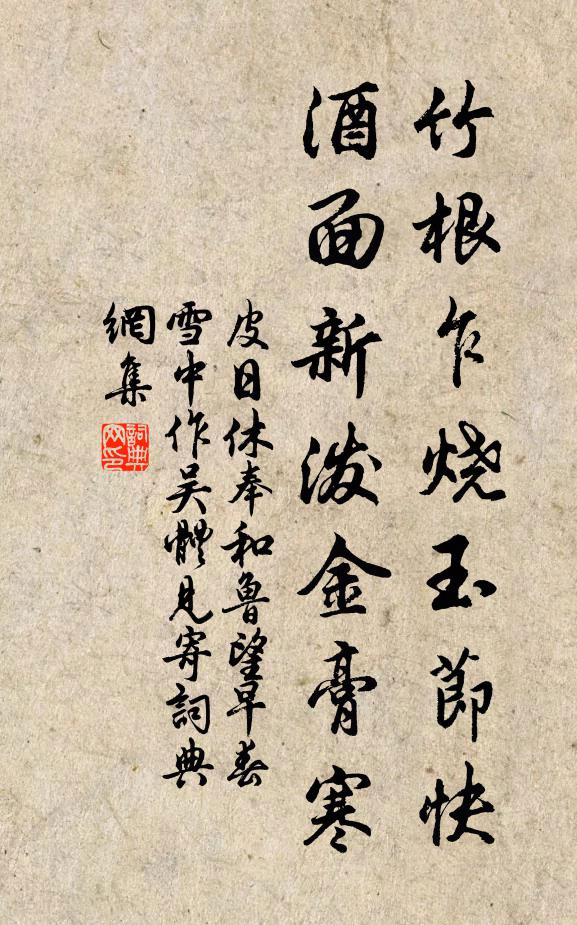 竹根乍烧玉節快
酒面新泼金膏寒
皮日休奉和魯望早春
雪中作吴體見寄詞典
網集
詞典網印